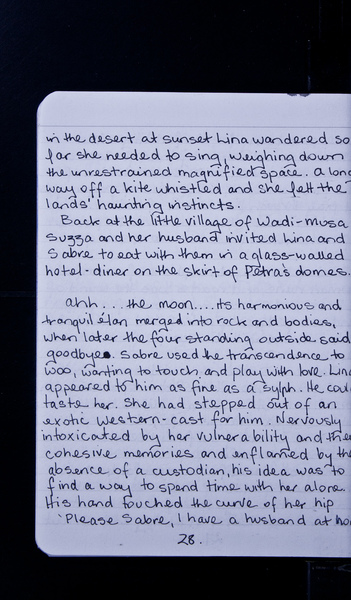 in the desert at sunset Lina wandered so
far she needed to sing, weighing down
the unrestrained magnified space. a long
way off a kite whistled and she felt the
lands' haunting instincts.
Back at the little village of Wadi-Musa
Suzza and her husband invited Lina and
Sabre to eat with them in a glass-walled
hotel-diner on the skirt of Petra's domes.
ahh... the moon....its harmonious and
tranquil élan merged into rock and bodies,
when later the four standing outside said
goodbye. Sabre used the transcendence to
woo, wanting to touch and play with love. Lina
appeared to him as fine as a sylph. He coul
taste her. She had stepped out of an
exotic western-cast for him. Nervously
intoxicated by her vulnerability and the
cohesive memories and enflamed by the
absence of a custodian, his idea was to
find a way to spend time with her alone.
His hand touched the curve of her hip
'Please Sabre, I have a husband at ho
28.